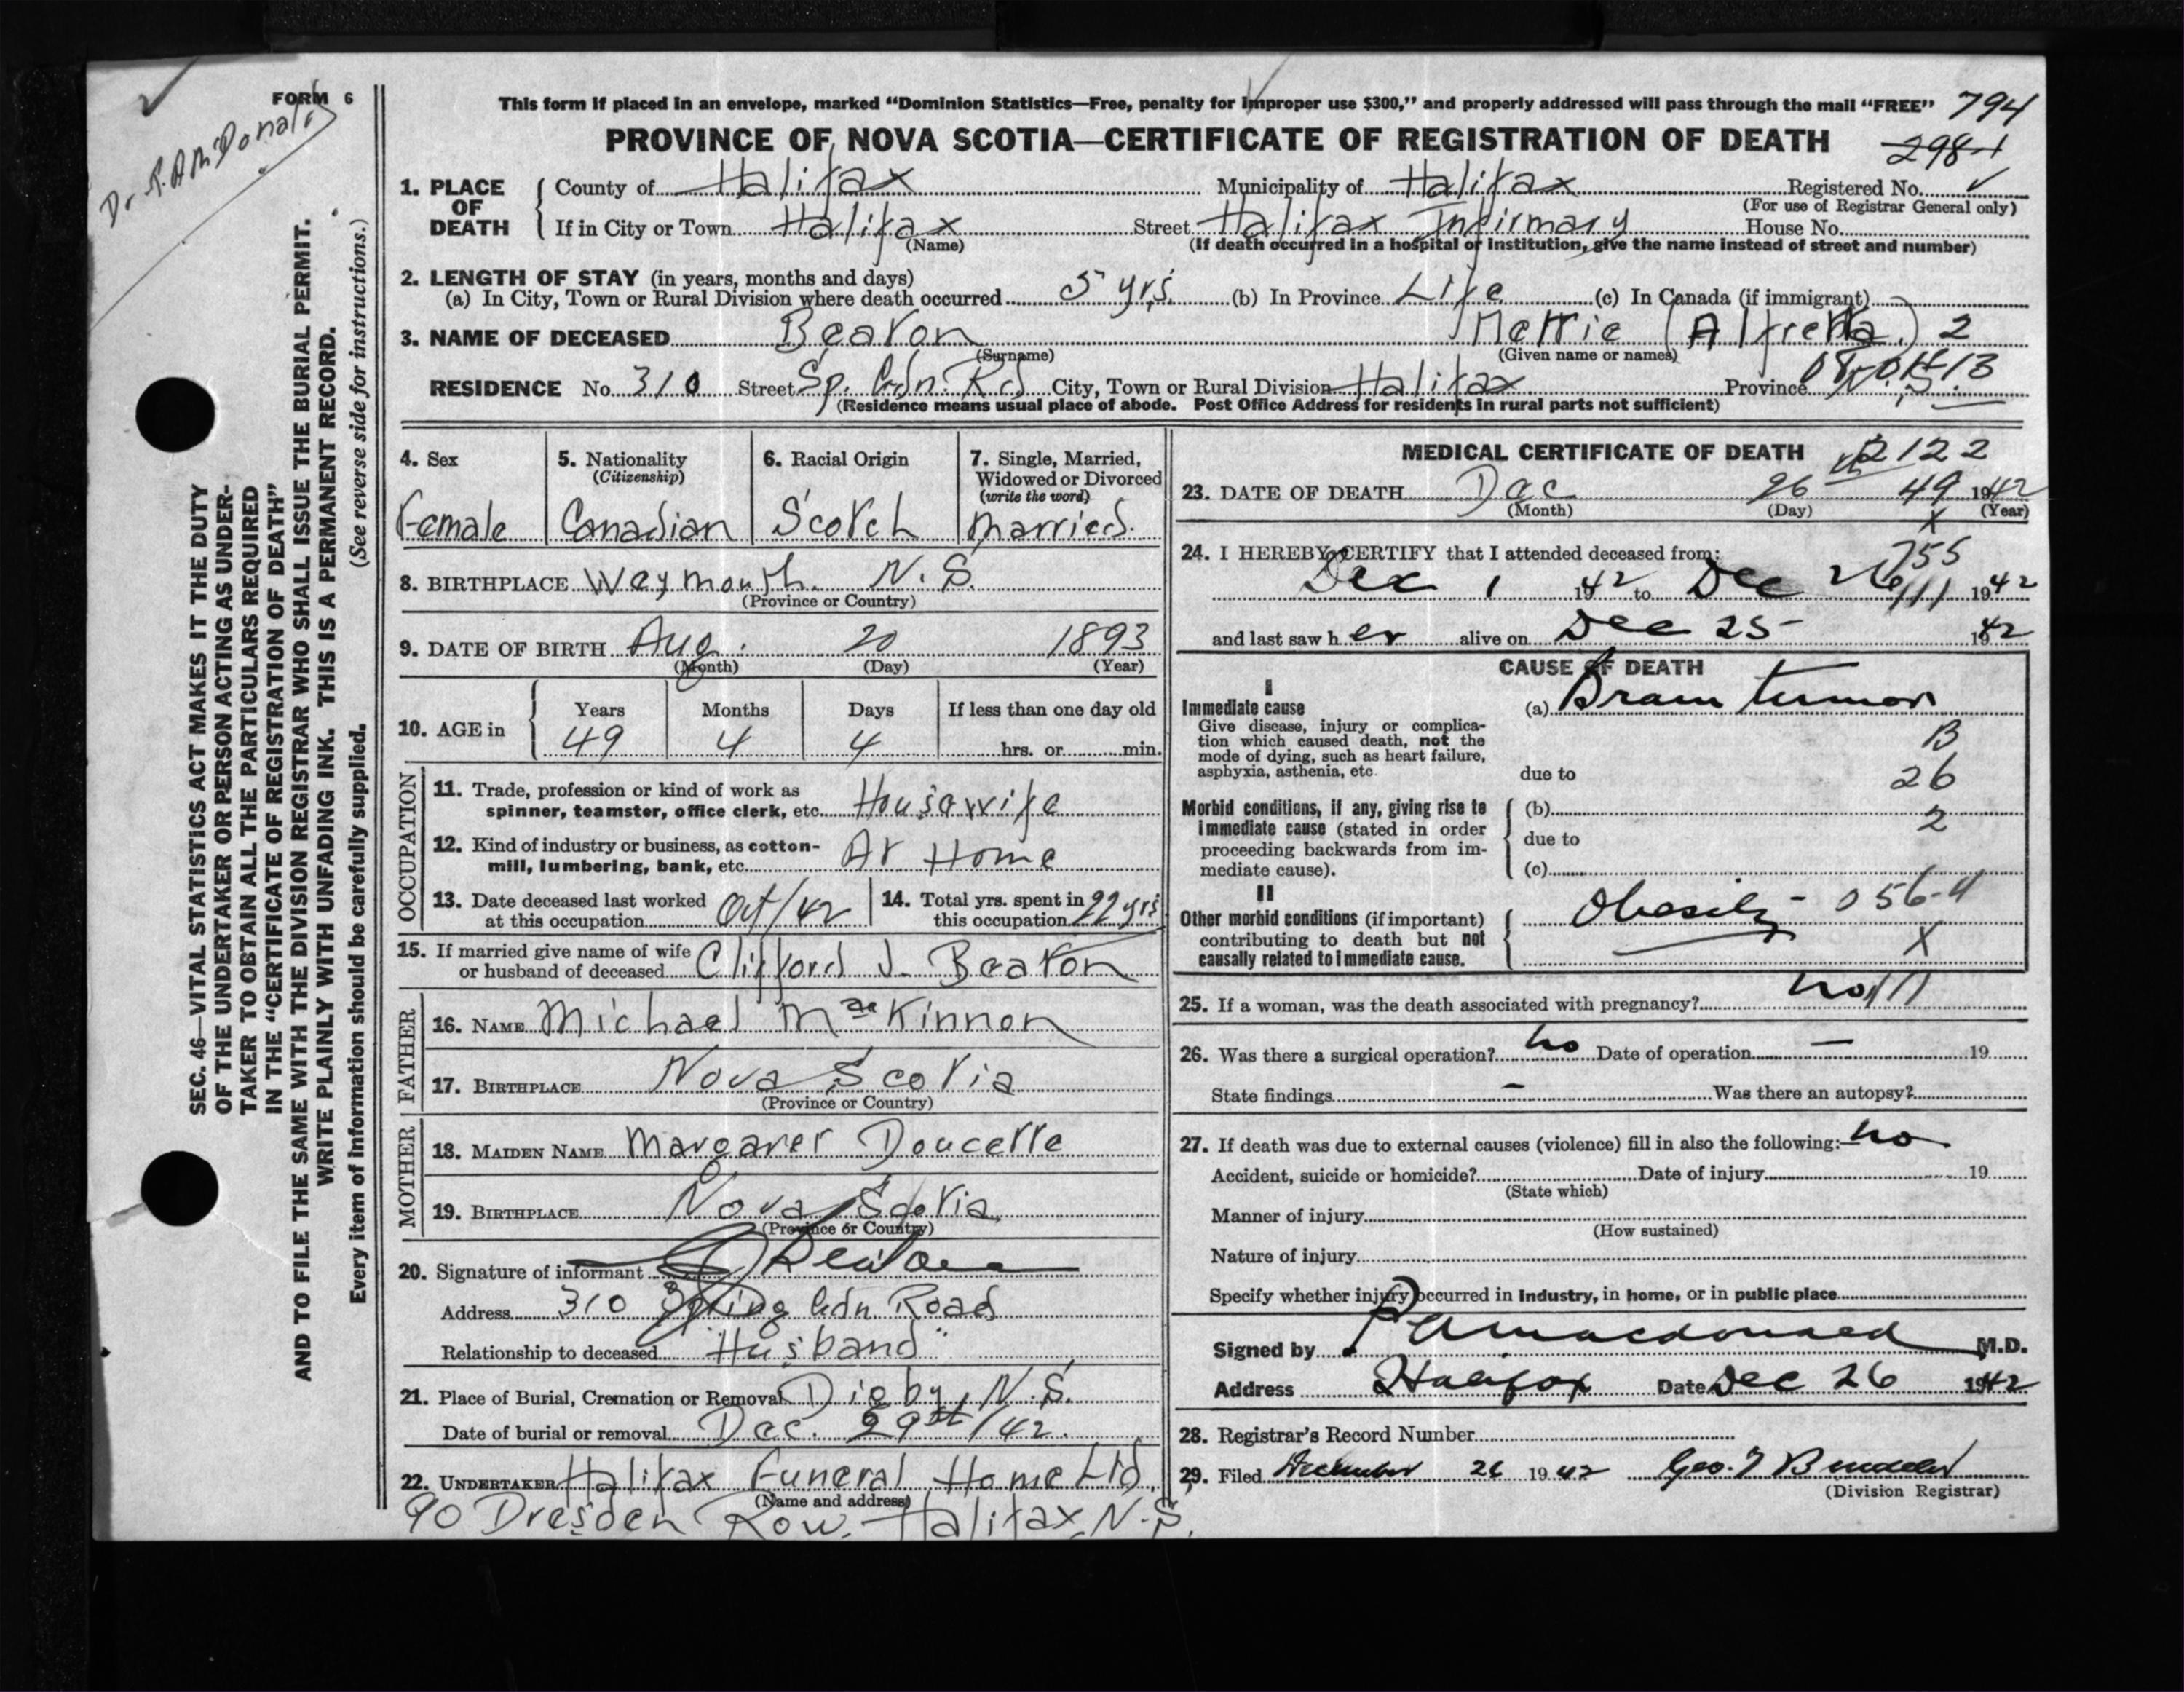 FORM 6
Dr. R.A. McDonald
This form if placed in an envelope, marked "Dominion Statistics—Free, penalty for improper use $300," and properly addressed will pass through the mail "FREE" 794
PROVINCE OF NOVA SCOTIA—CERTIFICATE OF REGISTRATION OF DEATH
SEC. 46—VITAL STATISTICS ACT MAKES IT THE DUTY
OF THE UNDERTAKER OR PERSON ACTING AS UNDER-
TAKER TO OBTAIN ALL THE PARTICULARS REQUIRED
IN THE "CERTIFICATE OF REGISTRATION OF DEATH"
AND TO FILE THE SAME WITH THE DIVISION REGISTRAR WHO SHALL ISSUE THE BURIAL PERMIT.
WRITE PLAINLY WITH UNFADING INK. THIS IS A PERMANENT RECORD.
Every item of information should be carefully supplied. (See reverse side for instructions.)
1. PLACE OF DEATH County of Halifax Municipality of Halifax Registered No.
(For use of Registrar General only)
If in City or Town Halifax Street Halifax Infirmary House No.
(Name) (If death occurred in a hospital or institution, give the name instead of street and number)
2. LENGTH OF STAY (in years, months and days)
(a) In City, Town or Rural Division where death occurred 5 yrs. (b) In Province Life (c) In Canada (if immigrant)
3. NAME OF DECEASED Beaton Mettie (Alfretta) 2
(Surname) (Given name or names)
RESIDENCE No. 310 Street Sp. Gdn. Rd City, Town or Rural Division Halifax Province N.S.
(Residence means usual place of abode. Post Office Address for residents in rural parts not sufficient)
4. Sex 5. Nationality 6. Racial Origin 7. Single, Married,
(Citizenship) Widowed or Divorced
(write the word)
Female Canadian Scotch Married.
8. BIRTHPLACE Weymouth. N.S.
(Province or Country)
9. DATE OF BIRTH Aug. 20 1893
(Month) (Day) (Year)
10. AGE in Years Months Days If less than one day old
49 4 4 hrs. or min.
OCCUPATION
11. Trade, profession or kind of work as
spinner, teamster, office clerk, etc. Housewife
12. Kind of industry or business, as cotton-
mill, lumbering, bank, etc. At Home
13. Date deceased last worked
at this occupation Oct/42
14. Total yrs. spent in
this occupation 22 yrs
15. If married give name of wife
or husband of deceased Clifford J. Beaton
FATHER
16. NAME Michael MacKinnon
17. BIRTHPLACE Nova Scotia
(Province or Country)
MOTHER
18. MAIDEN NAME Margaret Doucette
19. BIRTHPLACE Nova Scotia
(Province or Country)
20. Signature of informant Beaton
Address 310 Spring Gdn. Road
Relationship to deceased "Husband"
21. Place of Burial, Cremation or Removal Digby, N.S.
Date of burial or removal Dec. 29st/42.
22. UNDERTAKER Halifax Funeral Home Ltd,
(Name and address)
90 Dresden Row, Halifax, N.S.
MEDICAL CERTIFICATE OF DEATH 2122
23. DATE OF DEATH Dec 26 49 1942
(Month) (Day) (Year)
24. I HEREBY CERTIFY that I attended deceased from: 755
Dec 1 1942 to Dec 26 1942
and last saw her alive on Dec 25 1942
CAUSE OF DEATH
I
Immediate cause (a) Brain tumor
Give disease, injury or complica-
tion which caused death, not the
mode of dying, such as heart failure,
asphyxia, asthenia, etc. due to
B
26
2
Morbid conditions, if any, giving rise to (b)
immediate cause (stated in order
proceeding backwards from im- due to
mediate cause). (c)
II
Other morbid conditions (if important) Obesity - 056-4
contributing to death but not X
causally related to immediate cause.
25. If a woman, was the death associated with pregnancy? no
26. Was there a surgical operation? no Date of operation — 19
State findings - Was there an autopsy?
27. If death was due to external causes (violence) fill in also the following:— no
Accident, suicide or homicide? Date of injury 19
(State which)
Manner of injury
(How sustained)
Nature of injury
Specify whether injury occurred in industry, in home, or in public place
Signed by R A Macdonald M.D.
Address Halifax Date Dec 26 1942
28. Registrar's Record Number
29. Filed December 26 1942 Geo.
(Division Registrar)